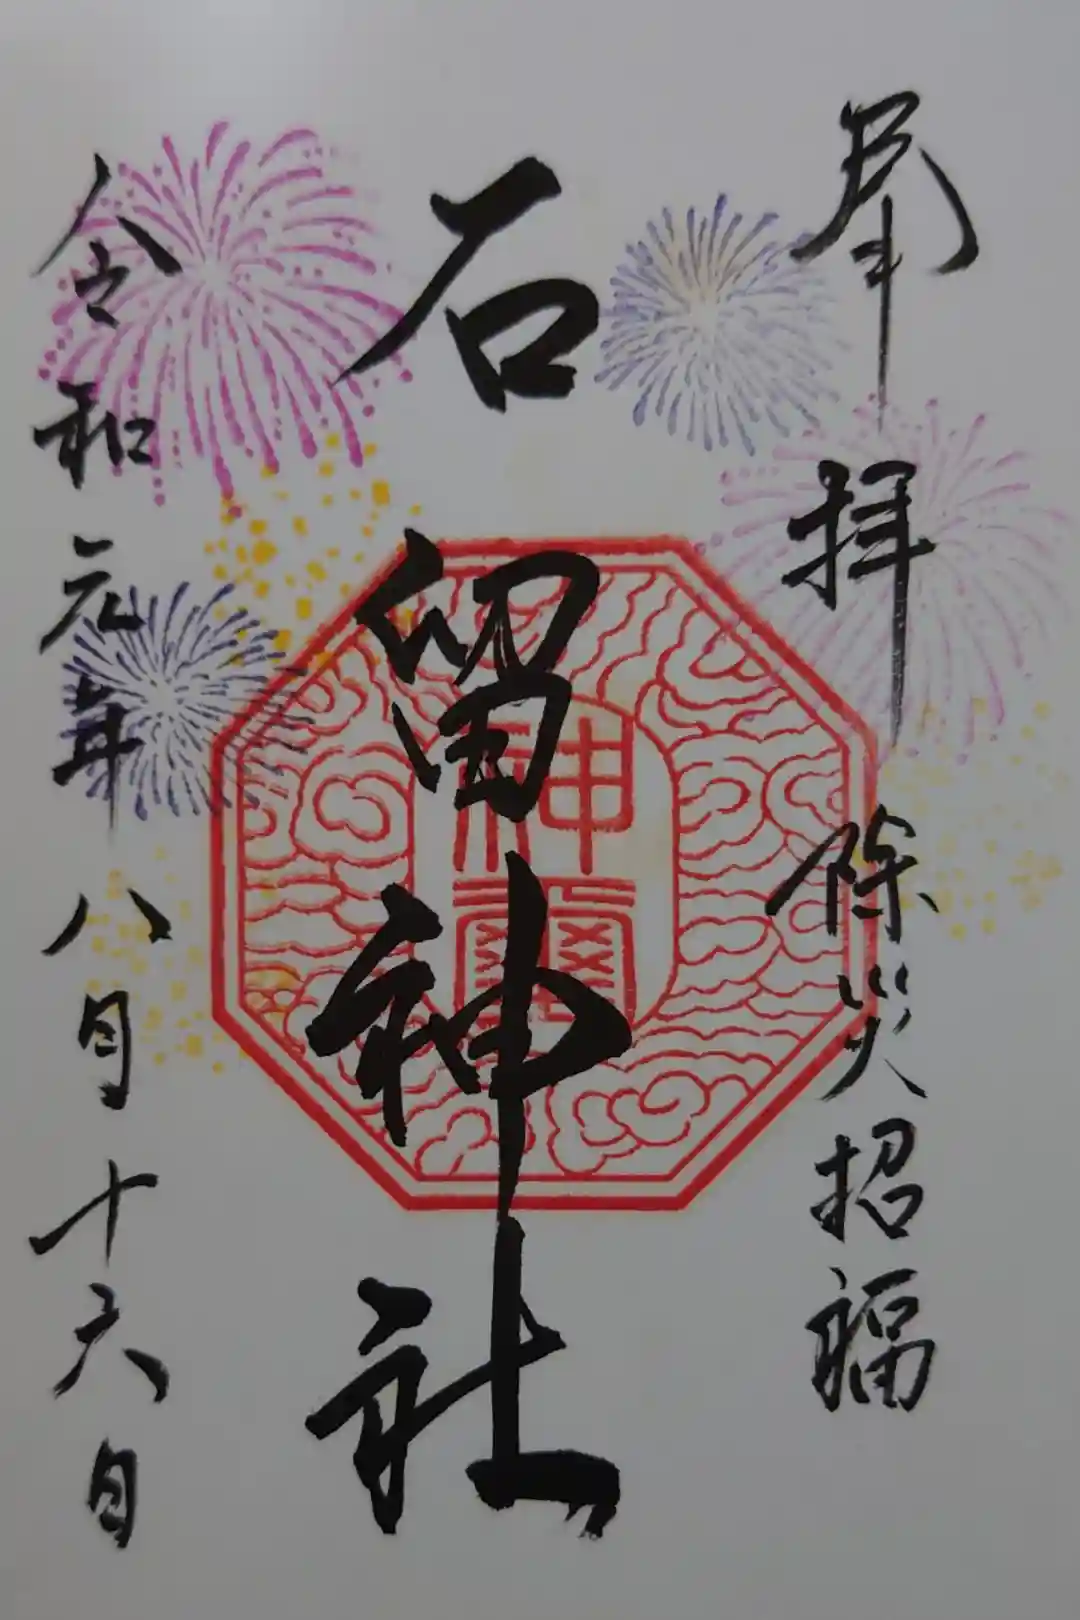 奉拝 除災招福
石留神社
神璽
令和元年八月十六日